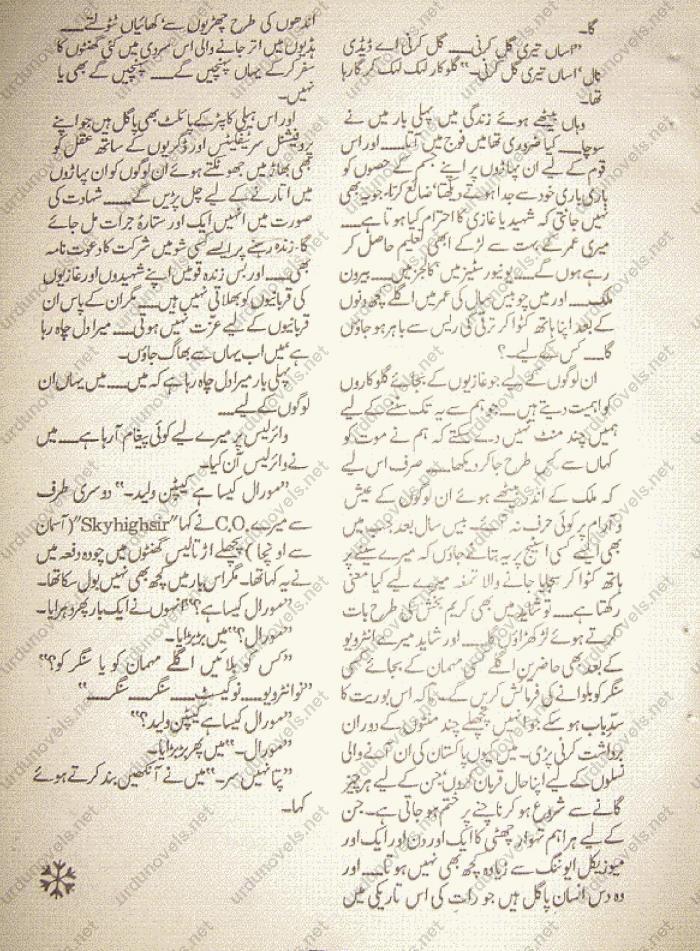 گا۔
"اساں تیری گل کرنی۔۔۔۔ گل کرنی اے ڈیڈی
نال' اساں تیری گل کرنی۔" گلوکار لہک لہک کر گا رہا
تھا۔
وہاں بیٹھے ہوئے زندگی میں پہلی بار میں نے
سوچا۔۔۔۔ کیا ضروری تھا میں فوج میں آتا۔۔۔۔ اور اس
قوم کے لیے ان پہاڑوں پر اپنے جسم کے حصوں کو
باری باری خود سے جدا ہوتے دیکھتا' ضائع کرتا' جو یہ بھی
نہیں جانتی کہ شہید یا غازی کا احترام کیا ہوتا ہے۔۔۔۔
میری عمر کے بہت سے لڑکے ابھی تعلیم حاصل کر
رہے ہوں گے۔۔۔۔ یونیورسٹیز میں' کالجز میں۔۔۔۔ بیرون
ملک۔۔۔۔ اور میں چوبیس سال کی عمر میں اگلے کچھ دنوں
کے بعد اپنا ہاتھ کٹوا کر ترقی کی ریس سے باہر ہو جاؤں
گا۔۔۔۔ کس کے لیے۔؟
ان لوگوں کے لیے جو غازیوں کے بجائے گلوکاروں
کو اہمیت دیتے ہیں۔۔۔۔ جو ہم سے یہ تک سننے کے لیے
ہمیں چند منٹ نہیں دے سکتے کہ ہم نے موت کو
کہاں سے کس طرح جا کر دیکھا۔۔۔۔ صرف اس لیے
کہ ملک کے اندر بیٹھے ہوئے ان لوگوں کے عیش
و آرام پر کوئی حرف نہ آئے۔ بیس سال بعد جب میں
بھی ایسے کسی اسٹیج پر یہ بتانے جاؤں کہ میرے سینے پر
ہاتھ کٹوا کر سجایا جانے والا تمغہ میرے لیے کیا معنی
رکھتا ہے۔۔۔۔ تو شاید میں بھی کریم بخش کی طرح بات
کرتے ہوئے لڑکھڑاؤں گا۔۔۔۔ اور شاید میرے انٹرویو
کے بعد بھی حاضرین اگلے کسی مہمان کے بجائے کسی
سنگر کو بلوانے کی فرمائش کریں گے۔ تاکہ اس بوریت کا
سدباب ہو سکے جو انہیں پچھلے چند منٹوں کے دوران
برداشت کرنی پڑی۔ میں کیوں پاکستان کی ان آنے والی
نسلوں کے لیے اپنا حال قربان کروں' جن کے لیے ہر چیز
گانے سے شروع ہو کر ناچنے پر ختم ہو جاتی ہے۔ جن
کے لیے ہر اہم تہوار چھٹی کا ایک اور دن اور ایک اور
میوزیکل ایوننگ سے زیادہ کچھ بھی نہیں ہوتا۔۔۔۔ اور
وہ دس انسان پاگل ہیں جو رات کی اس تاریکی میں
اندھوں کی طرح چھڑیوں سے' کھائیاں ٹٹولتے۔۔۔۔
ہڈیوں میں اتر جانے والی اس سردی میں کئی گھنٹوں کا
سفر کر کے یہاں پہنچیں گے۔۔۔۔ پہنچیں گے بھی یا
نہیں۔
اور اس ہیلی کاپٹر کے پائلٹ بھی پاگل ہیں جو اپنے
پروفیشنل سرٹیفکیٹس اور ڈگریوں کے ساتھ عقل کو
بھی بھاڑ میں جھونکتے ہوئے ان لوگوں کو ان پہاڑوں
میں اتارنے کے لیے چل پڑیں گے۔۔۔۔ شہادت کی
صورت میں انہیں ایک اور ستارۂ جرات مل جائے
گا۔ زندہ رہنے پر ایسے کسی شو میں شرکت کا دعوت نامہ
بھی۔۔۔۔ اور بس زندہ قومیں اپنے شہیدوں اور غازیوں
کی قربانیوں کو بھلاتی نہیں ہیں۔۔۔۔ مگر ان کے پاس ان
قربانیوں کے لیے عزت نہیں ہوتی۔۔۔۔ میرا دل چاہ رہا
ہے میں اب یہاں سے بھاگ جاؤں۔
پہلی بار میرا دل چاہ رہا ہے کہ میں۔۔۔۔ میں یہاں ان
لوگوں کے لیے۔۔۔۔
وائرلیس پر میرے لیے کوئی پیغام آ رہا ہے۔۔۔۔ میں
نے وائرلیس آن کیا۔
"مورال کیسا ہے کیپٹن ولید۔" دوسری طرف
سے میرے C.O. نے کہا "Skyhighsir" (آسمان
سے اونچا) پچھلے اڑتالیس گھنٹوں میں چودہ دفعہ میں
نے یہ کہا تھا۔ مگر اس بار میں کچھ بھی نہیں بول سکا تھا۔
"مورال کیسا ہے؟" انہوں نے ایک بار پھر دہرایا۔
"مورال؟" میں بڑبڑایا۔
"کس کو بلائیں اگلے مہمان کو یا سنگر کو؟"
"نو انٹرویو۔۔۔۔ نو گیسٹ۔۔۔۔ سنگر۔۔۔۔ سنگر۔۔۔۔"
"مورال کیسا ہے کیپٹن ولید؟"
"مورال۔" میں پھر بڑبڑایا۔
"پتا نہیں سر۔" میں نے آنکھیں بند کرتے ہوئے
کہا۔
urdunovels.net